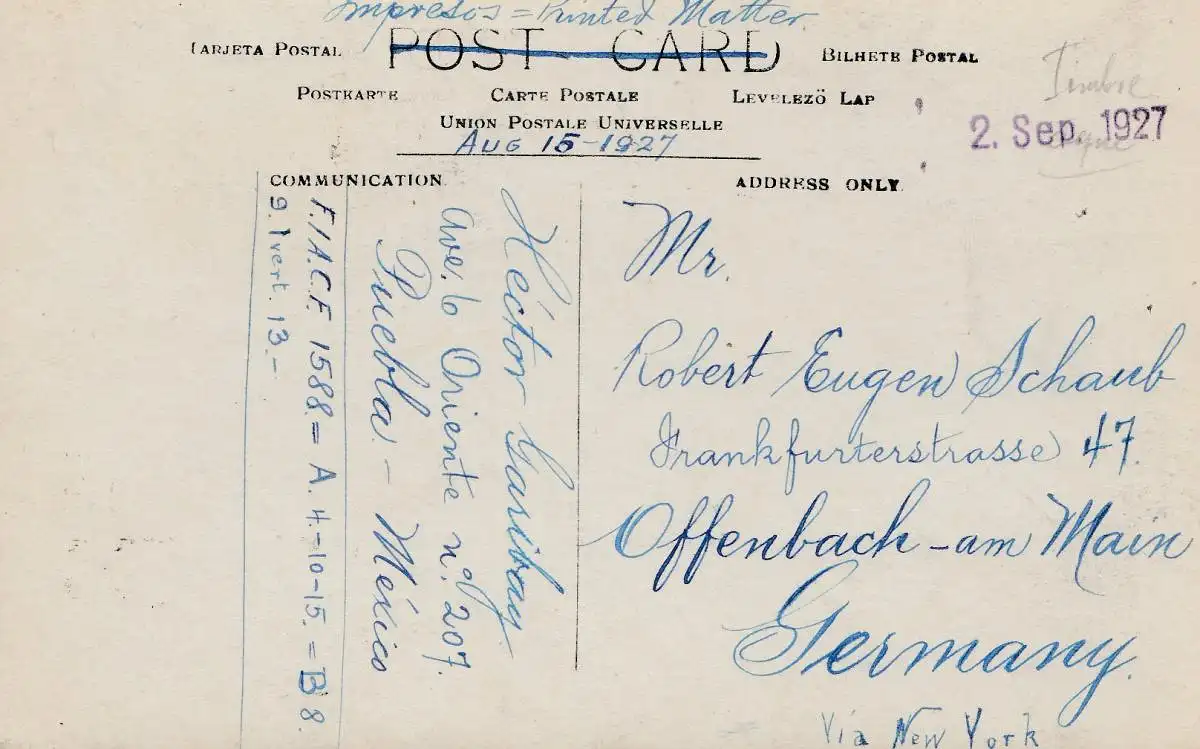 Impresos = Printed Matter
TARJETA POSTAL
POST CARD
BILHETE POSTAL
POSTKARTE
CARTE POSTALE
LEVELEZÖ LAP
UNION POSTALE UNIVERSELLE
AUG 15-1927
Timbre
2. Sep. 1927
COMMUNICATION
ADDRESS ONLY
Héctor Garibay
Ave. 6 Oriente nº 207.
Puebla - México
F.I.A.C.F. 1588 = A. 4-10-15. = B 8
9. 1 vert. 13.-
Mr.
Robert Eugen Schaub
Frankfurterstrasse 47.
Offenbach-am Main
Germany.
Vía New York